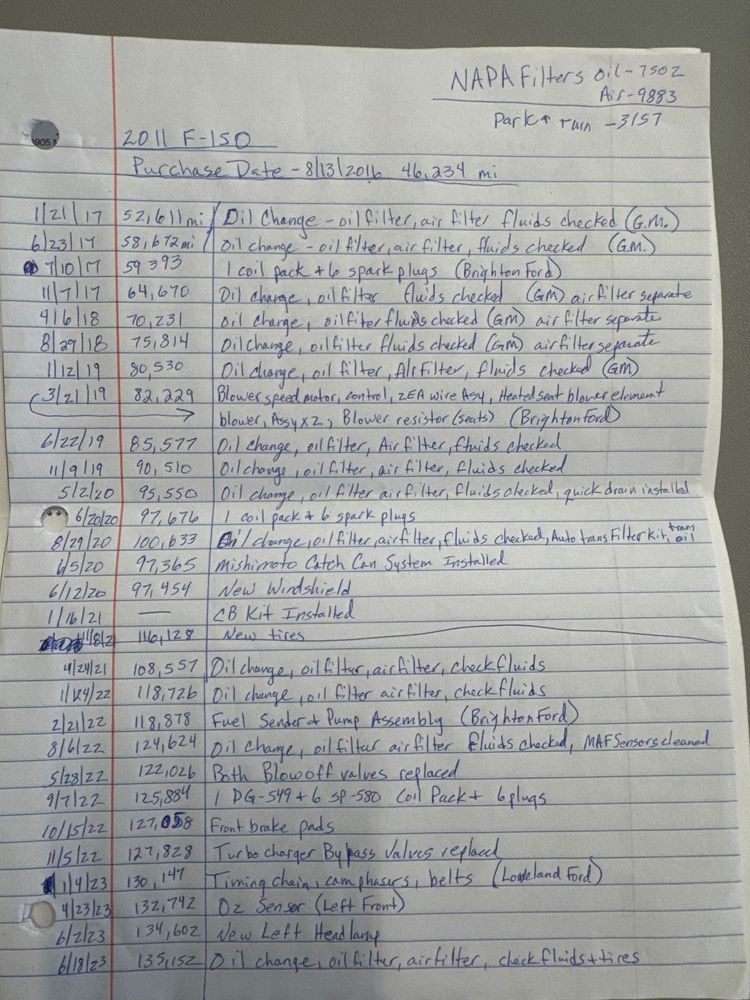 NAPA Filters Oil-7502
Air-9883
Park + turn -3157
2011 F-150
Purchase Date - 8/13/2016 46,234 mi
1/21/17 52,611 mi Oil Change - oil filter, air filter fluids checked (G.M.)
6/23/17 58,672 mi Oil change - oil filter, air filter, fluids checked (G.M.)
7/10/17 59393 1 coil pack + 6 spark plugs (Brighton Ford)
11/7/17 64,670 Oil change, oil filter fluids checked (GM) air filter separate
4/6/18 70,231 oil change, oilfilter fluids checked (GM) air filter separate
8/29/18 75,814 Oil change, oilfilter fluids checked (GM) air filter separate
1/12/19 80,530 Oil change, oil filter, Air Filter, fluids checked (GM)
3/21/19 82,229 Blower speed motor, control, ZEA wire Asy, Heated seat blower element
blower, Assy x 2, Blower resistor (seats) (Brighton Ford)
6/22/19 85,577 Oil change, oil filter, Air filter, fluids checked
11/9/19 90,510 Oil change, oil filter, air filter, fluids checked
5/2/20 95,550 Oil change, oil filter air filter, fluids checked, quick drain installed
6/20/20 97,676 1 coil pack + 6 spark plugs
8/29/20 100,633 Oil change, oil filter, air filter, fluids checked, Auto trans Filter Kit, trans oil
6/5/20 97,365 Mishimoto Catch Can System Installed
6/12/20 97,454 New Windshield
1/16/21 — CB Kit Installed
11/8/21 116,128 New tires
4/24/21 108,557 Oil change, oil filter, air filter, check fluids
1/24/22 118,726 Oil change, oil filter air filter, check fluids
2/21/22 118,878 Fuel Sender + Pump Assembly (Brighton Ford)
8/6/22 124,624 Oil Change, oil filter air filter fluids checked, MAF Sensors cleaned
5/28/22 122,026 Both Blowoff valves replaced
9/7/22 125,884 1 DG-549 + 6 SP-580 Coil Pack + 6 plugs
10/15/22 127,058 Front brake pads
11/5/22 127,828 Turbo charger Bypass valves replaced
1/4/23 130,147 Timing chain, cam phasers, belts (Loveland Ford)
4/23/23 132,742 O2 Sensor (Left Front)
6/2/23 134,602 New Left Headlamp
6/18/23 135,152 Oil change, oil filter, air filter, check fluids + tires